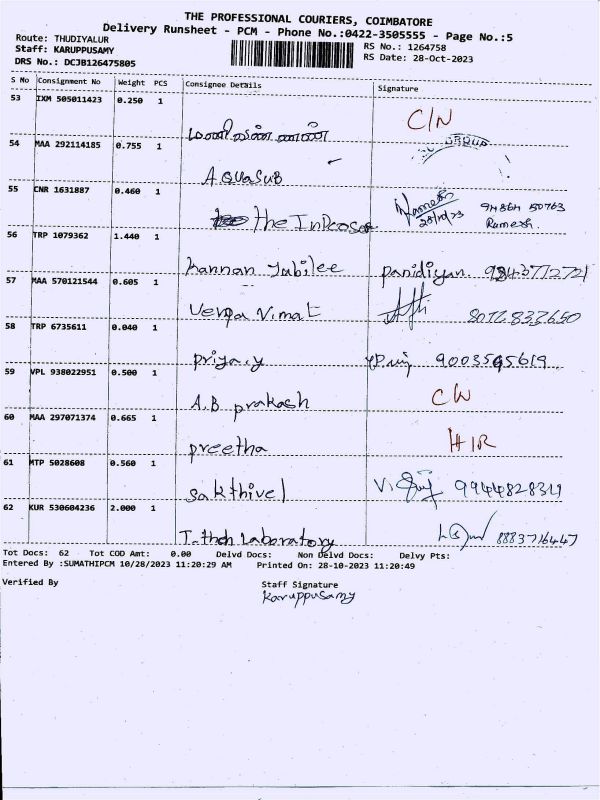 THE PROFESSIONAL COURIERS, COIMBATORE
Delivery Runsheet - PCM - Phone No.:0422-3505555 - Page No.:5
Route: THUDIYALUR
Staff: KARUPPUSAMY
RS No.: 1264758
DRS No.: DCJB126475805
RS Date: 28-Oct-2023
S No Consignment No Weight PCS Consignee Details Signature
53 IXM 505011423 0.250 1
C/N
54 MAA 292114185 0.755 1
AQUASUB
55 CNR 1631887 0.460 1
the
Ramesh 28/10/23 94864 50763
Ramesh
56 TRP 1079362 1.440 1
Kannan Jubilee Panidiyan
57 MAA 570121544 0.605 1
Vimal 8072832650
58 TRP 6735611 0.040 1
Priya.y 9003595619
59 VPL 938022951 0.500 1
A.B prakash
60 MAA 297071374 0.665 1
preetha
61 MTP 5028608 0.560 1
Sakthivel 9944828311
62 KUR 530604236 2.000 1
Laboratory 8883716447
Tot Docs: 62 Tot COD Amt: 0.00 Delvd Docs: Non Delvd Docs: Delvy Pts:
Entered By :SUMATHIPCM 10/28/2023 11:20:29 AM Printed On: 28-10-2023 11:20:49
Verified By Staff Signature
Karuppusamy